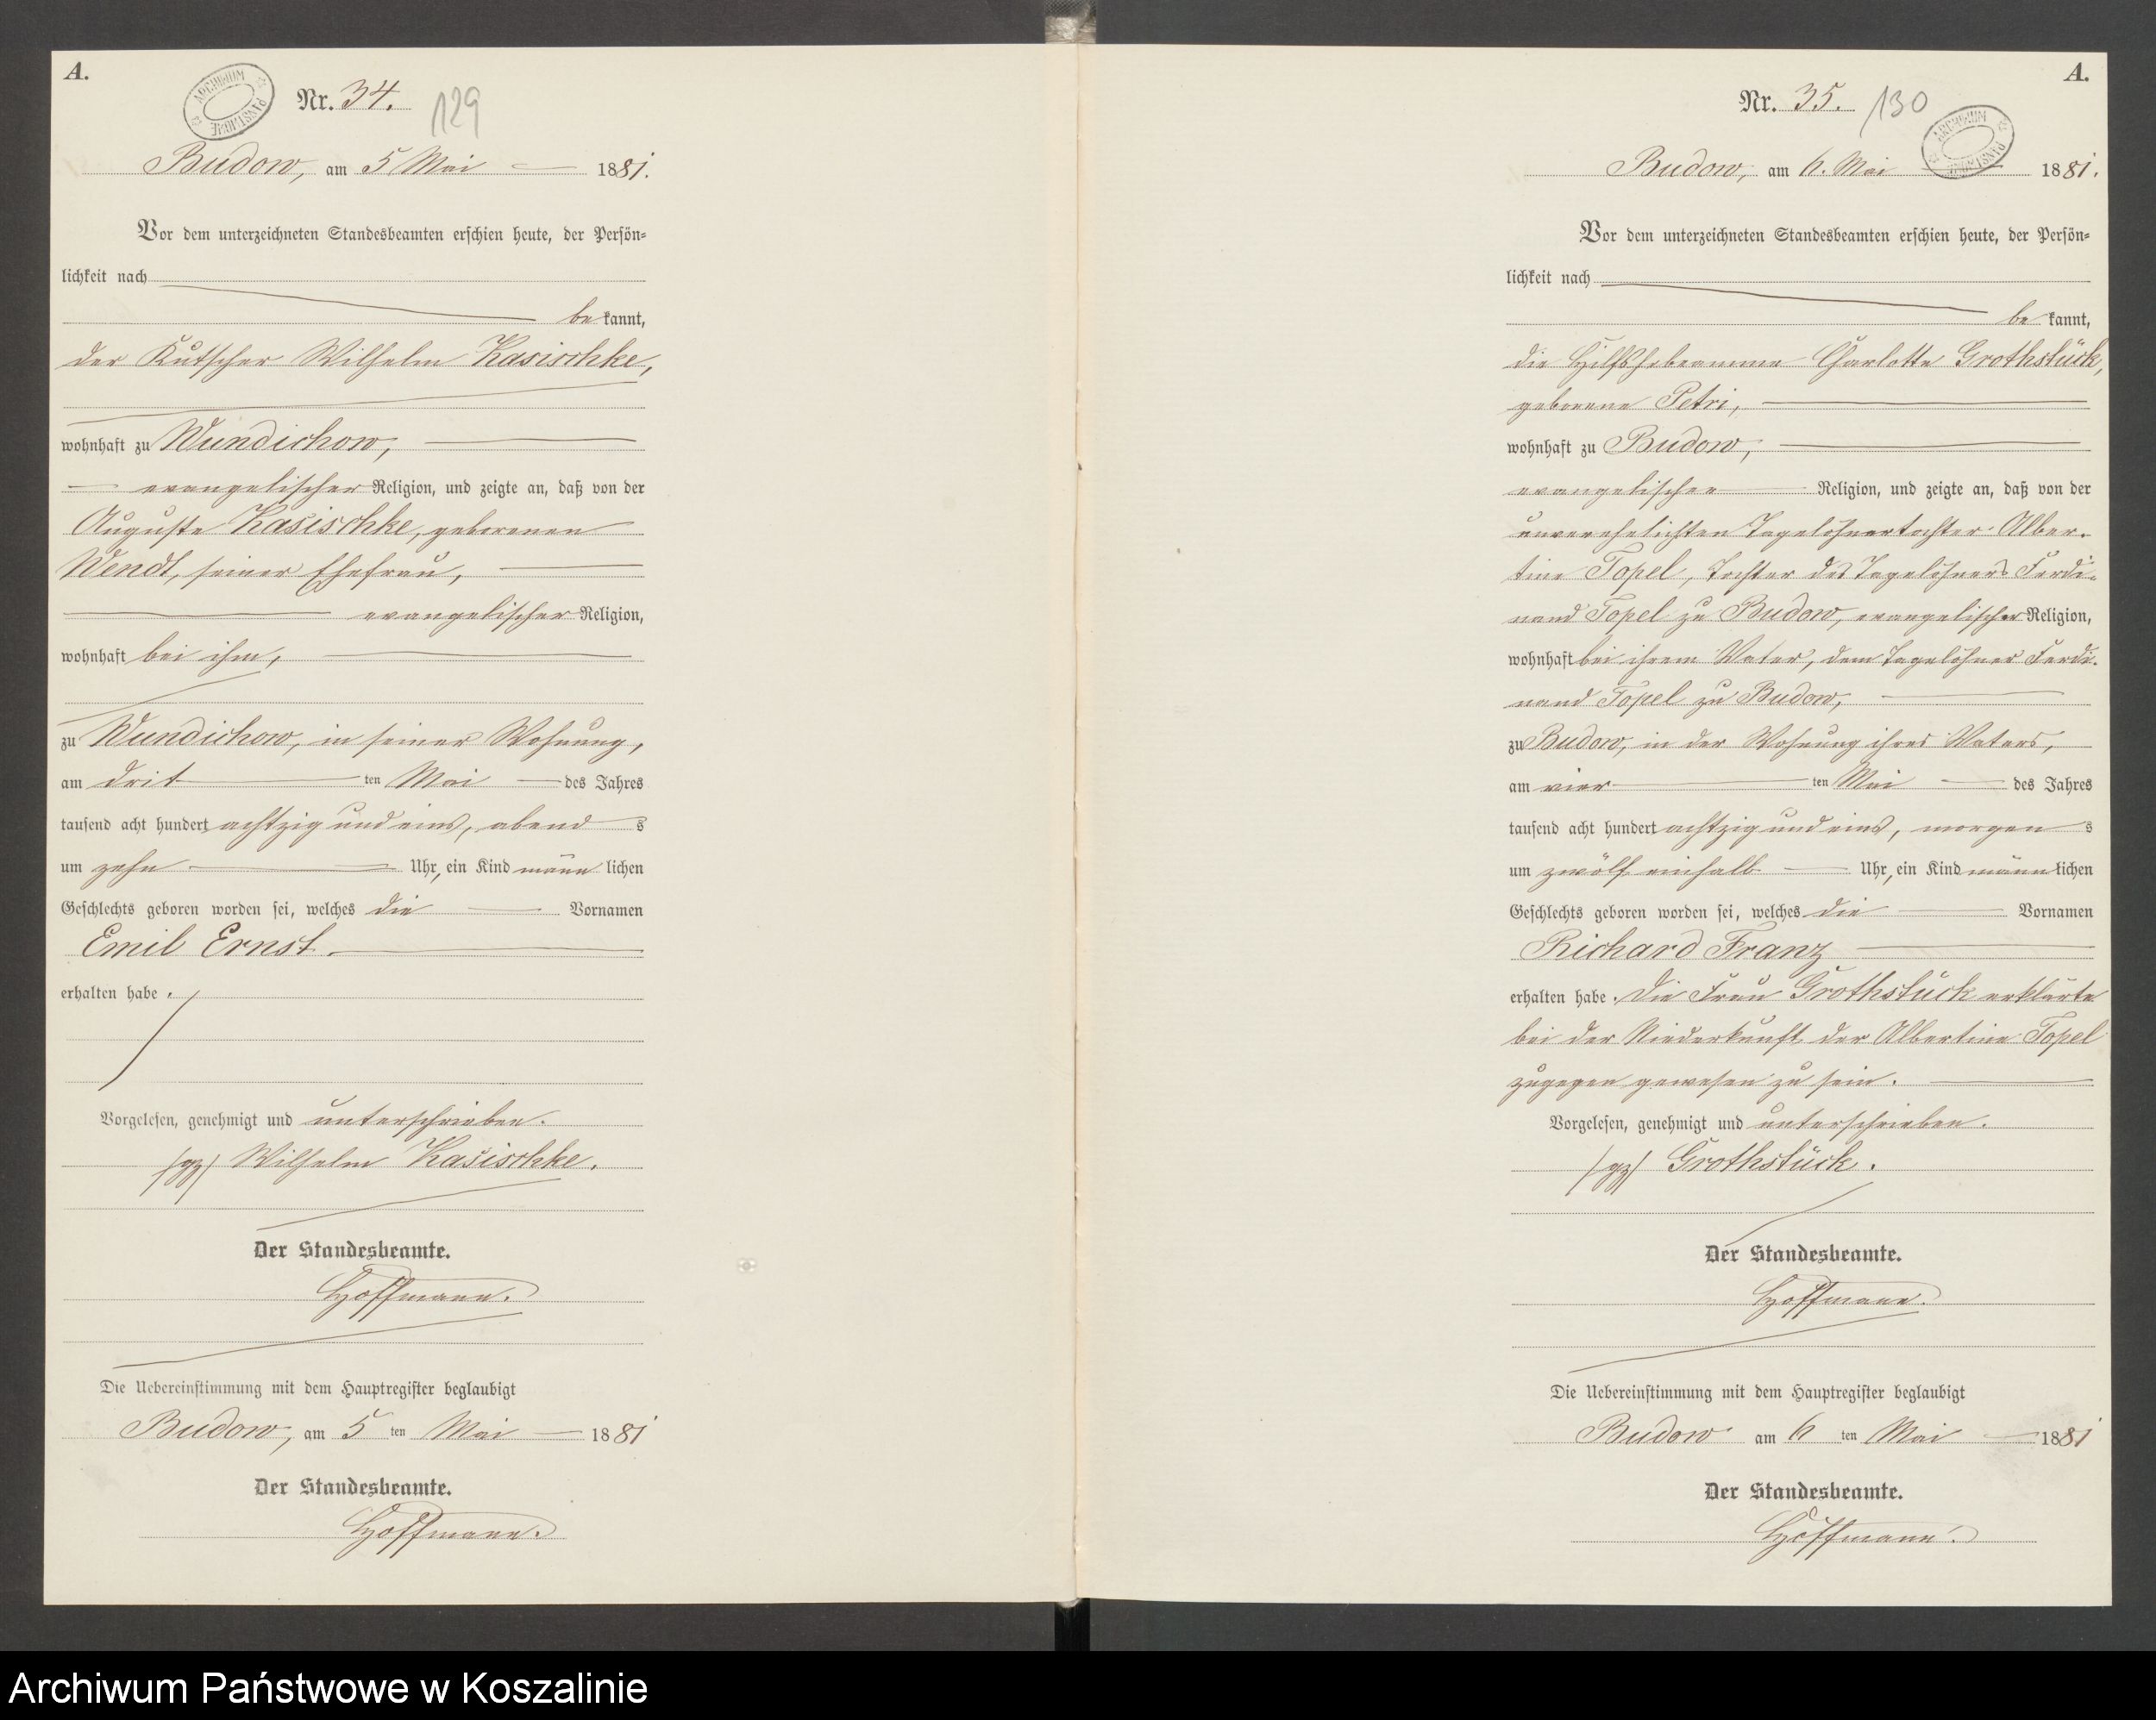 A.
ARCHIWUM PAŃSTWOWE
Nr. 34. 129
Budow, am 5 Mai 1881.
Vor dem unterzeichneten Standesbeamten erschien heute, der Persön-
lichkeit nach
bekannt,
der Kutscher Wilhelm Kasischke,
wohnhaft zu Wundichow,
evangelischer Religion, und zeigte an, daß von der
Auguste Kasischke, geborenen
Wendt, seiner Ehefrau,
evangelischer Religion,
wohnhaft bei ihm,
zu Wundichow, in seiner Wohnung,
am dritten Mai des Jahres
tausend acht hundert achtzig und eins, abends
um zehn Uhr, ein Kind männlichen
Geschlechts geboren worden sei, welches die Vornamen
Emil Ernst
erhalten habe.
Vorgelesen, genehmigt und unterschrieben.
/gz/ Wilhelm Kasischke.
Der Standesbeamte.
Hoffmann.
Die Uebereinstimmung mit dem Hauptregister beglaubigt
Budow, am 5 ten Mai 1881
Der Standesbeamte.
Hoffmann.
A.
Nr. 35. 130
ARCHIWUM PAŃSTWOWE
Budow, am 6. Mai 1881.
Vor dem unterzeichneten Standesbeamten erschien heute, der Persön-
lichkeit nach
bekannt,
die Hilfshebeamme Charlotte Grothstück,
geborene Petri,
wohnhaft zu Budow,
evangelischer Religion, und zeigte an, daß von der
unverehelichten Tagelöhnertochter Alber-
tine Topel, Tochter des Tagelöhners Ferdi-
nand Topel zu Budow, evangelischer Religion,
wohnhaft bei ihrem Vater, dem Tagelöhner Ferdi-
nand Topel zu Budow,
zu Budow, in der Wohnung ihres Vaters,
am vierten Mai des Jahres
tausend acht hundert achtzig und eins, morgens
um zwölf einhalb Uhr, ein Kind männlichen
Geschlechts geboren worden sei, welches die Vornamen
Richard Franz
erhalten habe. Die Frau Grothstück erklärte
bei der Niederkunft der Albertine Topel
zugegen gewesen zu sein.
Vorgelesen, genehmigt und unterschrieben.
/gz/ Grothstück.
Der Standesbeamte.
Hoffmann.
Die Uebereinstimmung mit dem Hauptregister beglaubigt
Budow am 6 ten Mai 1881
Der Standesbeamte.
Hoffmann.
Archiwum Państwowe w Koszalinie